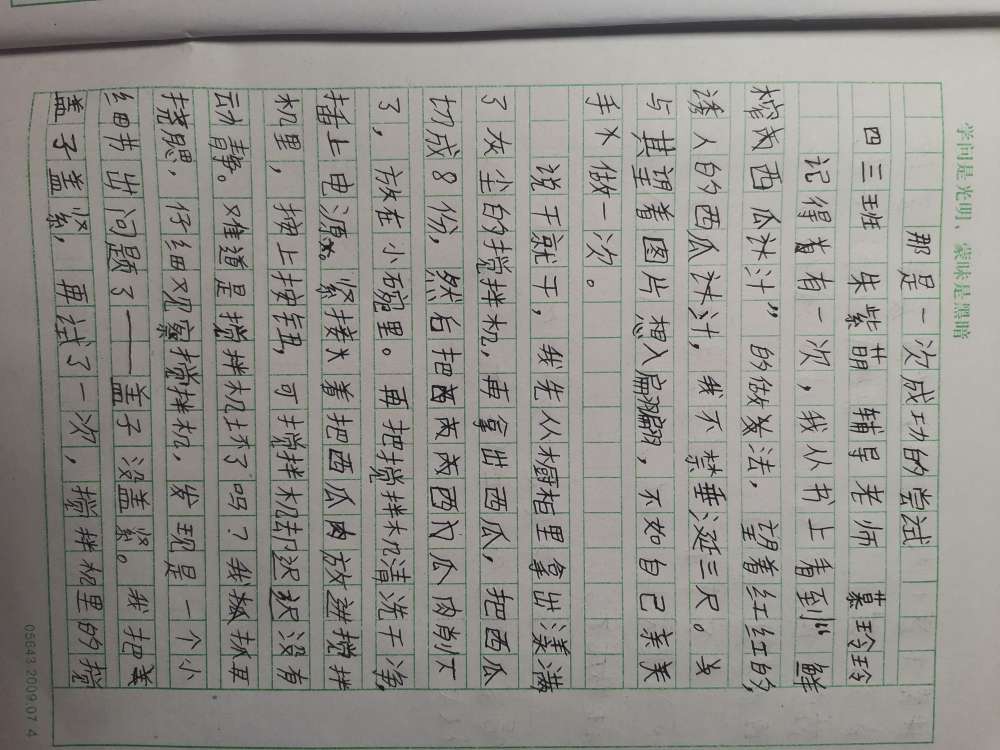 学问是光明、蒙昧是黑暗
那是一次成功的尝试
四三班 朱紫萌 辅导老师 慕玲玲
记得有一次,我从书上看到“鲜
榨西瓜冰汁”的做法,望着红红的,
诱人的西瓜冰汁,我不禁垂涎三尺。
与其望着图片想入扁翩,不如自己美美
手做一次。
说干就干,我先从橱柜里拿出满
了灰尘的搅拌机,再拿出西瓜,把西瓜
切成8份,然后把西瓜肉削下
了,放在小碗里。再把搅拌机清洗干净,
插上电源。紧接着把西瓜肉放进搅拌
机里,按上按钮,可搅拌机却迟迟没有
动静。难道是搅拌机坏了吗?我抓耳
挠腮,仔细观察搅拌机,发现是一个小
细节出问题了——盖子没盖紧。我把
盖子盖紧,再试了一次,搅拌机里的搅
05643.2009.07 4